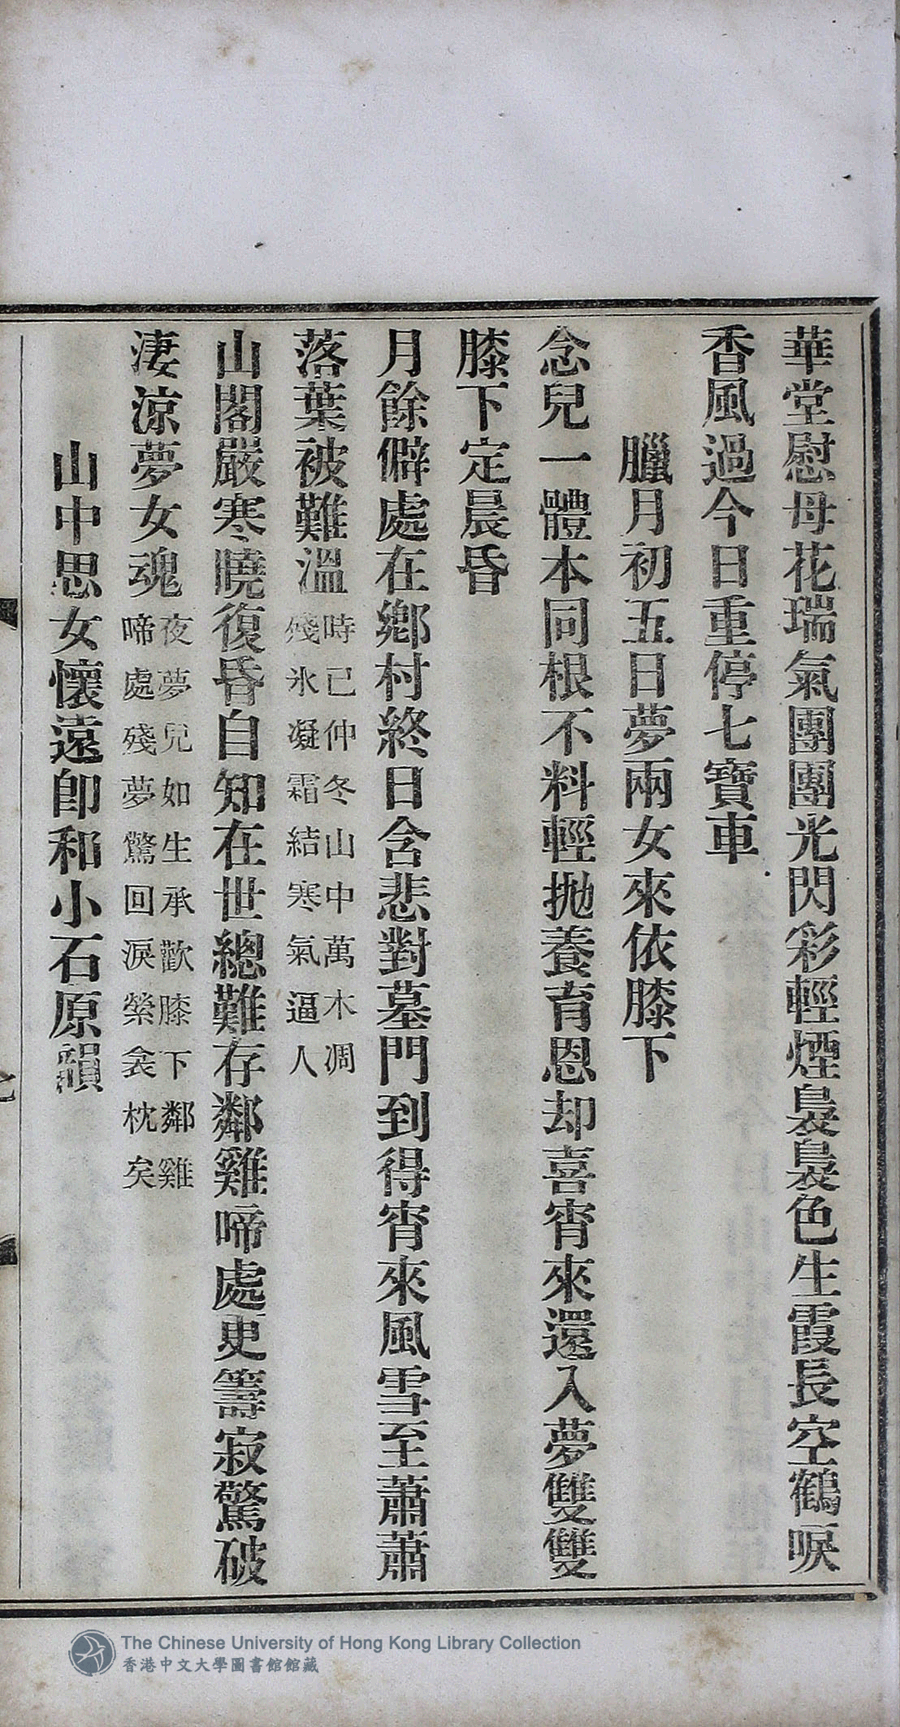 華堂慰母花瑞氣團團光閃彩輕煙裊裊色生霞長空鶴唳
香風過今日重停七寶車
臘月初五日夢兩女來依膝下
念兒一體本同根不料輕拋養育恩却喜宵來還入夢雙雙
膝下定晨昏
月餘僻處在鄉村終日含悲對墓門到得宵來風雪至蕭蕭
落葉被難溫
時已仲冬山中萬木凋
殘氷凝霜結寒氣逼人
山閣嚴寒曉復昏自知在世總難存鄰雞啼處更籌寂驚破
淒涼夢女魂
夜夢兒如生承歡膝下鄰雞
啼處殘夢驚回淚縈衾枕矣
山中思女懷遠卽和小石原韻
The Chinese University of Hong Kong Library Collection
香港中文大學圖書館館藏